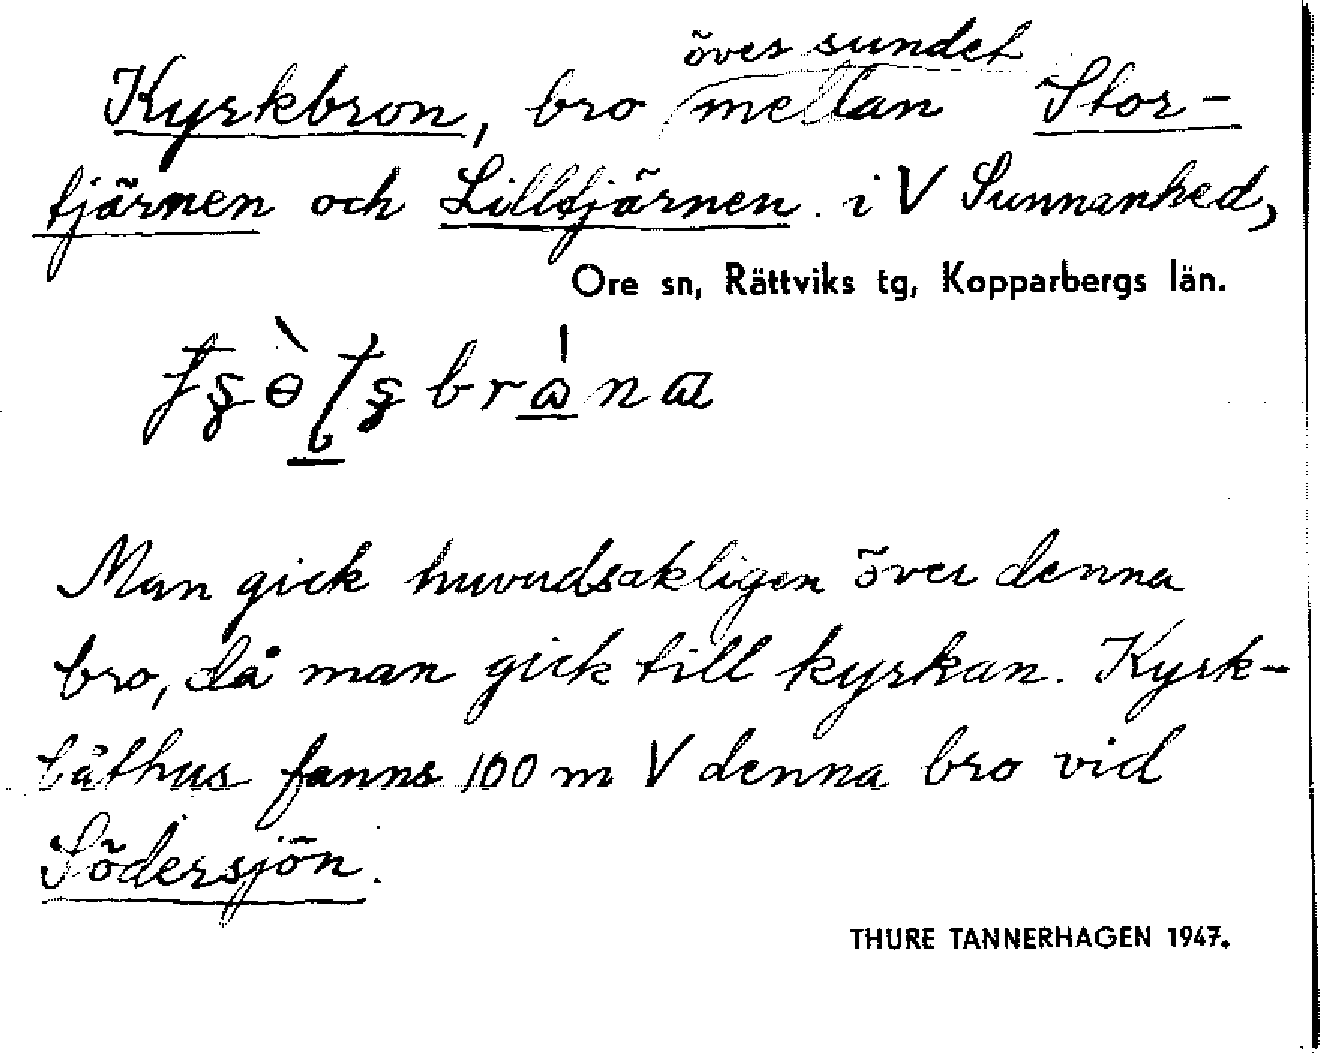 över sundet
Kyrkbron, bro mellan Stor-
tjärnen och Lilltjärnen. i V Sunnanhed,
Ore sn, Rättviks tg, Kopparbergs län.
Man gick huvudsakligen över denna
bro, då man gick till kyrkan. Kyrk-
båthus fanns 100 m V denna bro vid
Södersjön.
THURE TANNERHAGEN 1947.